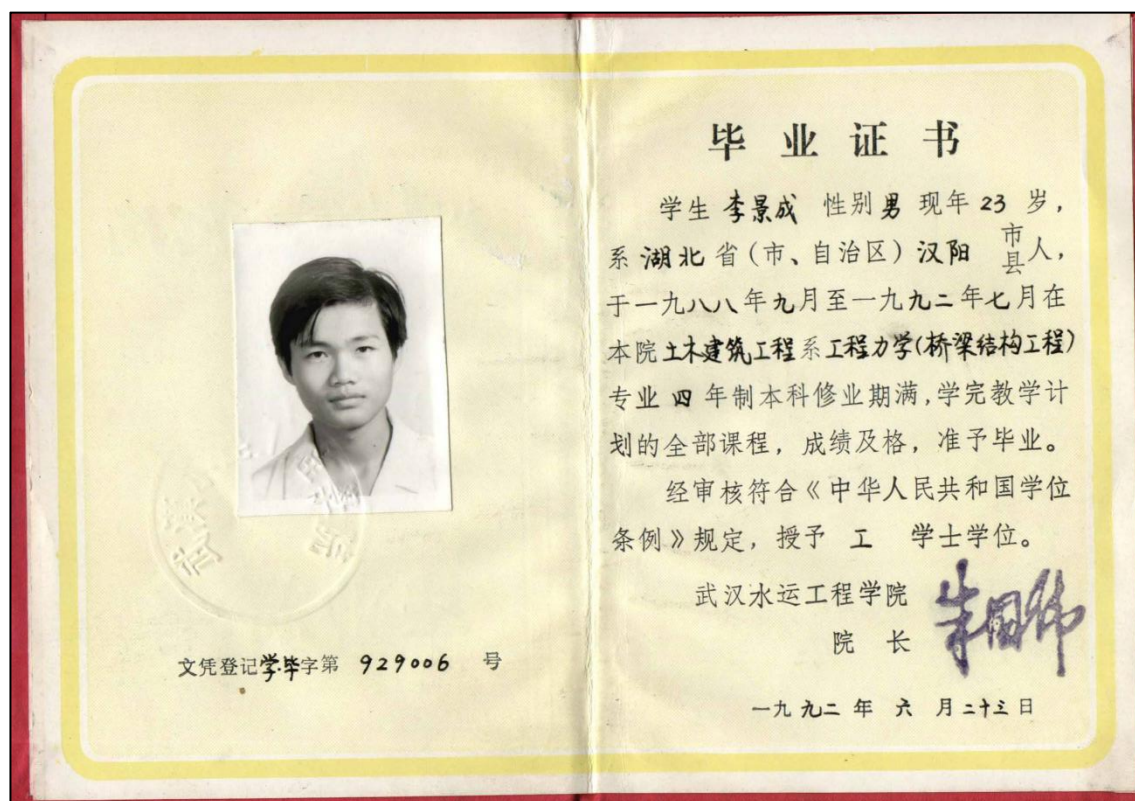 文凭登记学毕字第 929006 号
毕业证书
学生 李景成 性别 男 现年 23 岁，
系 湖北 省（市、自治区）汉阳 市县人，
于一九八八年九月至一九九二年七月在
本院土木建筑工程系工程力学(桥梁结构工程)
专业 四 年制本科修业期满，学完教学计
划的全部课程，成绩及格，准予毕业。
经审核符合《中华人民共和国学位
条例》规定，授予 工 学士学位。
武汉水运工程学院
院 长
一九九二年 六 月二十三日